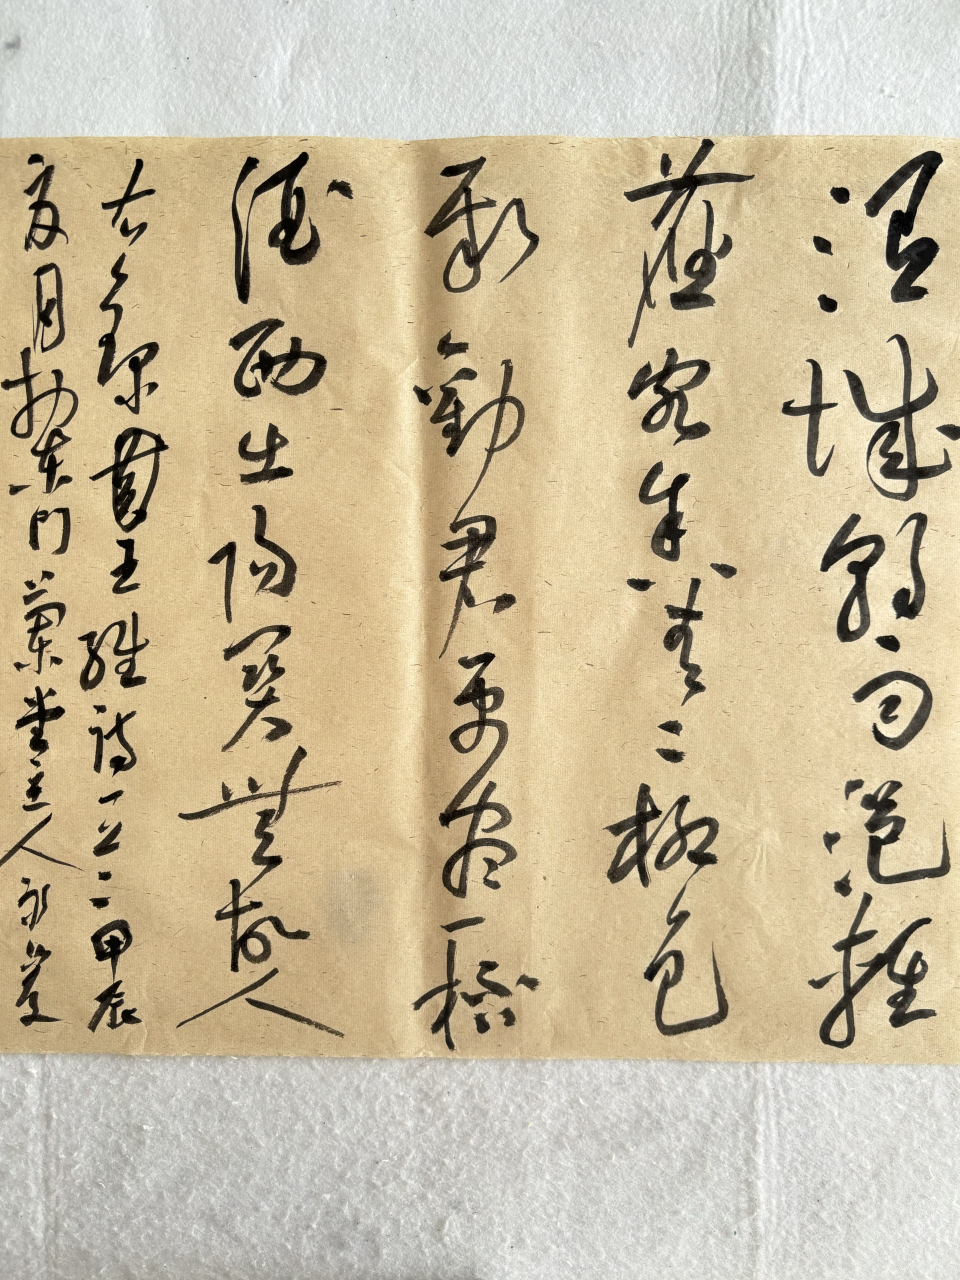 渭城朝雨浥輕
塵客舍青〻柳色
新勸君更盡一杯
酒西出陽關無故人
右錄王維詩一甲辰
夏月東門蘭堂人永